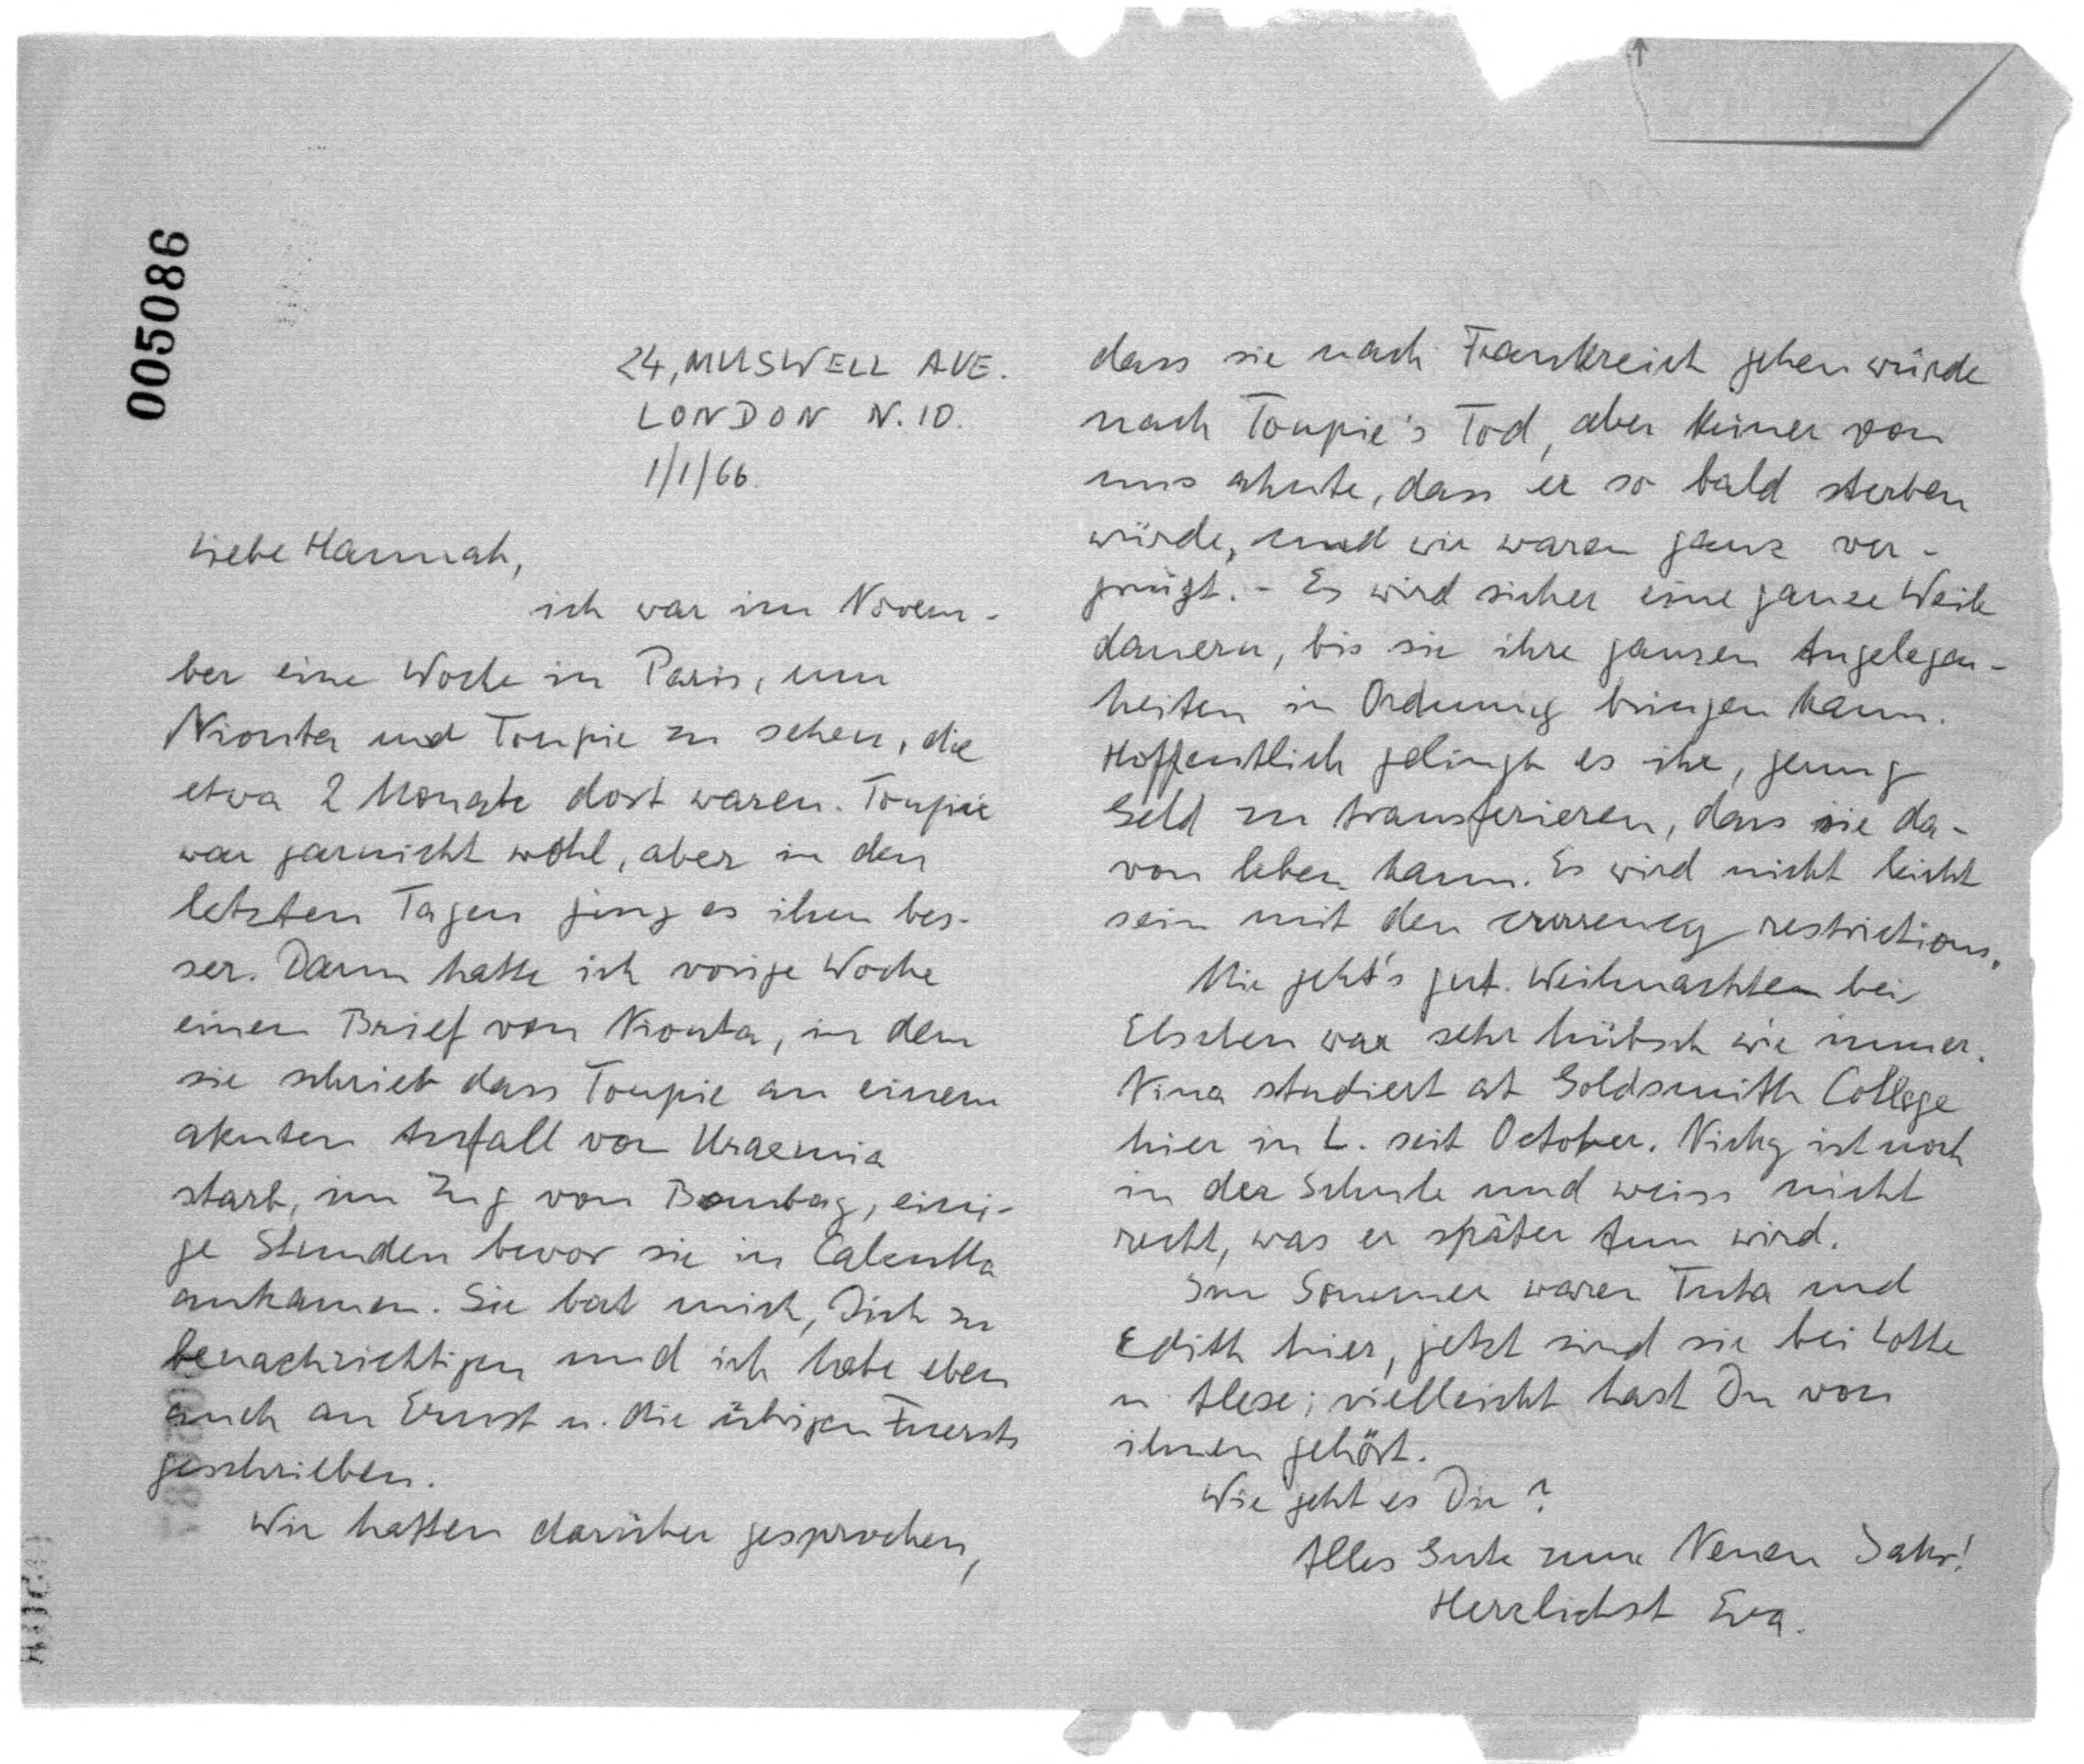 005086
24, MUSWELL AVE.
LONDON N.10.
1/1/66.
Liebe Hannah,
ich war im Novem-
ber eine Woche in Paris, um
Niouta und Toupie zu sehen, die
etwa 2 Monate dort waren. Toupie
war garnicht wohl, aber in den
letzten Tagen ging es ihm bes-
ser. Dann hatte ich vorige Woche
einen Brief von Niouta, in dem
sie schrieb dass Toupie an einem
akuten Anfall von Uraemia
starb, im Zug von Bombay, eini-
ge Stunden bevor sie in Calcutta
ankamen. Sie bat mich, Dich zu
benachrichtigen und ich habe eben
auch an Ernst u. die übrigen Fuersts
geschrieben.
Wir hatten darüber gesprochen,
dass sie nach Frankreich gehen würde
nach Toupie's Tod, aber keiner von
uns ahnte, dass er so bald sterben
würde, und wir waren ganz ver-
gnügt. - Es wird sicher eine ganze Weile
dauern, bis sie ihre ganzen Angelegen-
heiten in Ordnung bringen kann.
Hoffentlich gelingt es ihr, genug
Geld zu transferieren, dass sie da-
von leben kann. Es wird nicht leicht
sein mit den currency restrictions.
Mir geht's gut. Weihnachten bei
Elschen war sehr hübsch wie immer.
Nina studiert at Goldsmith College
hier in L. seit October. Nicky ist noch
in der Schule und weiss nicht
recht, was er später tun wird.
Im Sommer waren Tuta und
Edith hier, jetzt sind sie bei Lotte
u. Alese; vielleicht hast Du von
ihnen gehört.
Wie geht es Dir?
Alles Gute zum Neuen Jahr!
Herzlichst Eva.